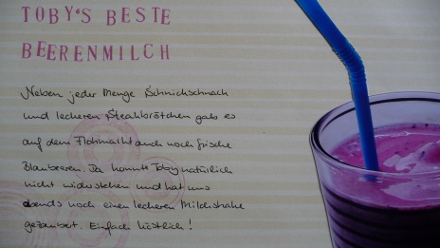 TOBY'S BESTE
BEERENMILCH
Neben jeder Menge Schnickschnach
und leckeren Steakbrötchen gab es
auf dem Flohmarkt auch noch frische
Blaubeeren. Da konnte Toby natürlich
nicht widerstehen und hat uns
abends noch einen leckeren Milchshake
gezaubert. Einfach köstlich!